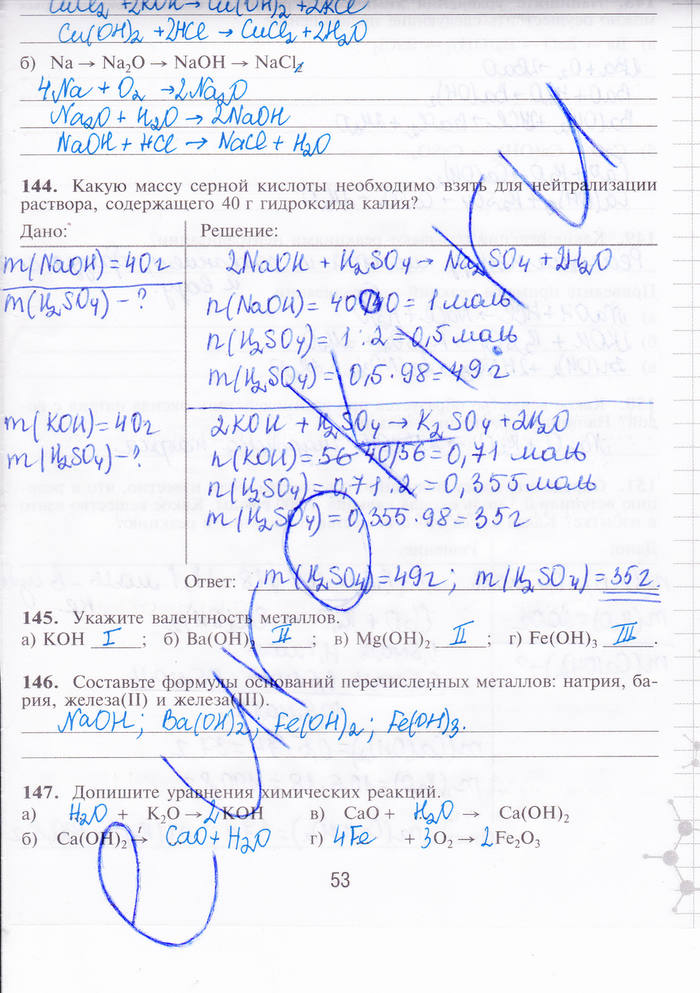 CuCl₂ + 2KOH → Cu(OH)₂ + 2KCl
Cu(OH)₂ + 2HCl → CuCl₂ + 2H₂O
б) Na → Na₂O → NaOH → NaCl
4Na + O₂ → 2Na₂O
Na₂O + H₂O → 2NaOH
NaOH + HCl → NaCl + H₂O
144. Какую массу серной кислоты необходимо взять для нейтрализации
раствора, содержащего 40 г гидроксида калия?
Дано: Решение:
m(NaOH)=40г 2NaOH + H₂SO₄ → Na₂SO₄ + 2H₂O
m(H₂SO₄) – ? n(NaOH) = 40/40 = 1 моль
n(H₂SO₄) = 1 : 2 = 0,5 моль
m(H₂SO₄) = 0,5 · 98 = 49 г
m(KOH)=40г 2KOH + H₂SO₄ → K₂SO₄ + 2H₂O
m(H₂SO₄) – ? n(KOH) = 56 40/56 = 0,71 моль
n(H₂SO₄) = 0,71 : 2 = 0,355 моль
m(H₂SO₄) = 0,355 · 98 = 35 г
Ответ: m(H₂SO₄) = 49 г; m(H₂SO₄) = 35 г.
145. Укажите валентность металлов.
а) KOH I ; б) Ba(OH)₂ II ; в) Mg(OH)₂ II ; г) Fe(OH)₃ III .
146. Составьте формулы оснований перечисленных металлов: натрия, ба-
рия, железа(II) и железа(III).
NaOH; Ba(OH)₂; Fe(OH)₂; Fe(OH)₃.
147. Допишите уравнения химических реакций.
а) H₂O + K₂O → 2KOH в) CaO + H₂O → Ca(OH)₂
б) Ca(OH)₂ → CaO + H₂O г) 4Fe + 3O₂ → 2Fe₂O₃
53